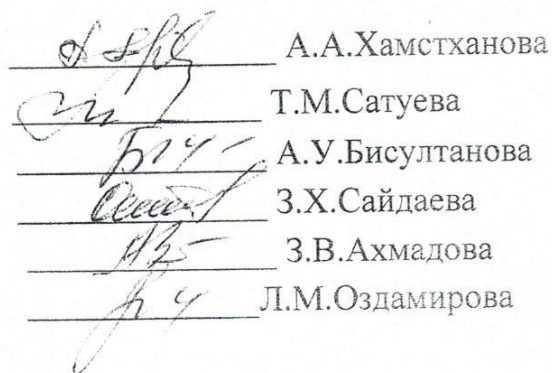 А.А.Хамстханова
Т.М.Сатуева
А.У.Бисултанова
З.Х.Сайдаева
З.В.Ахмадова
Л.М.Оздамирова